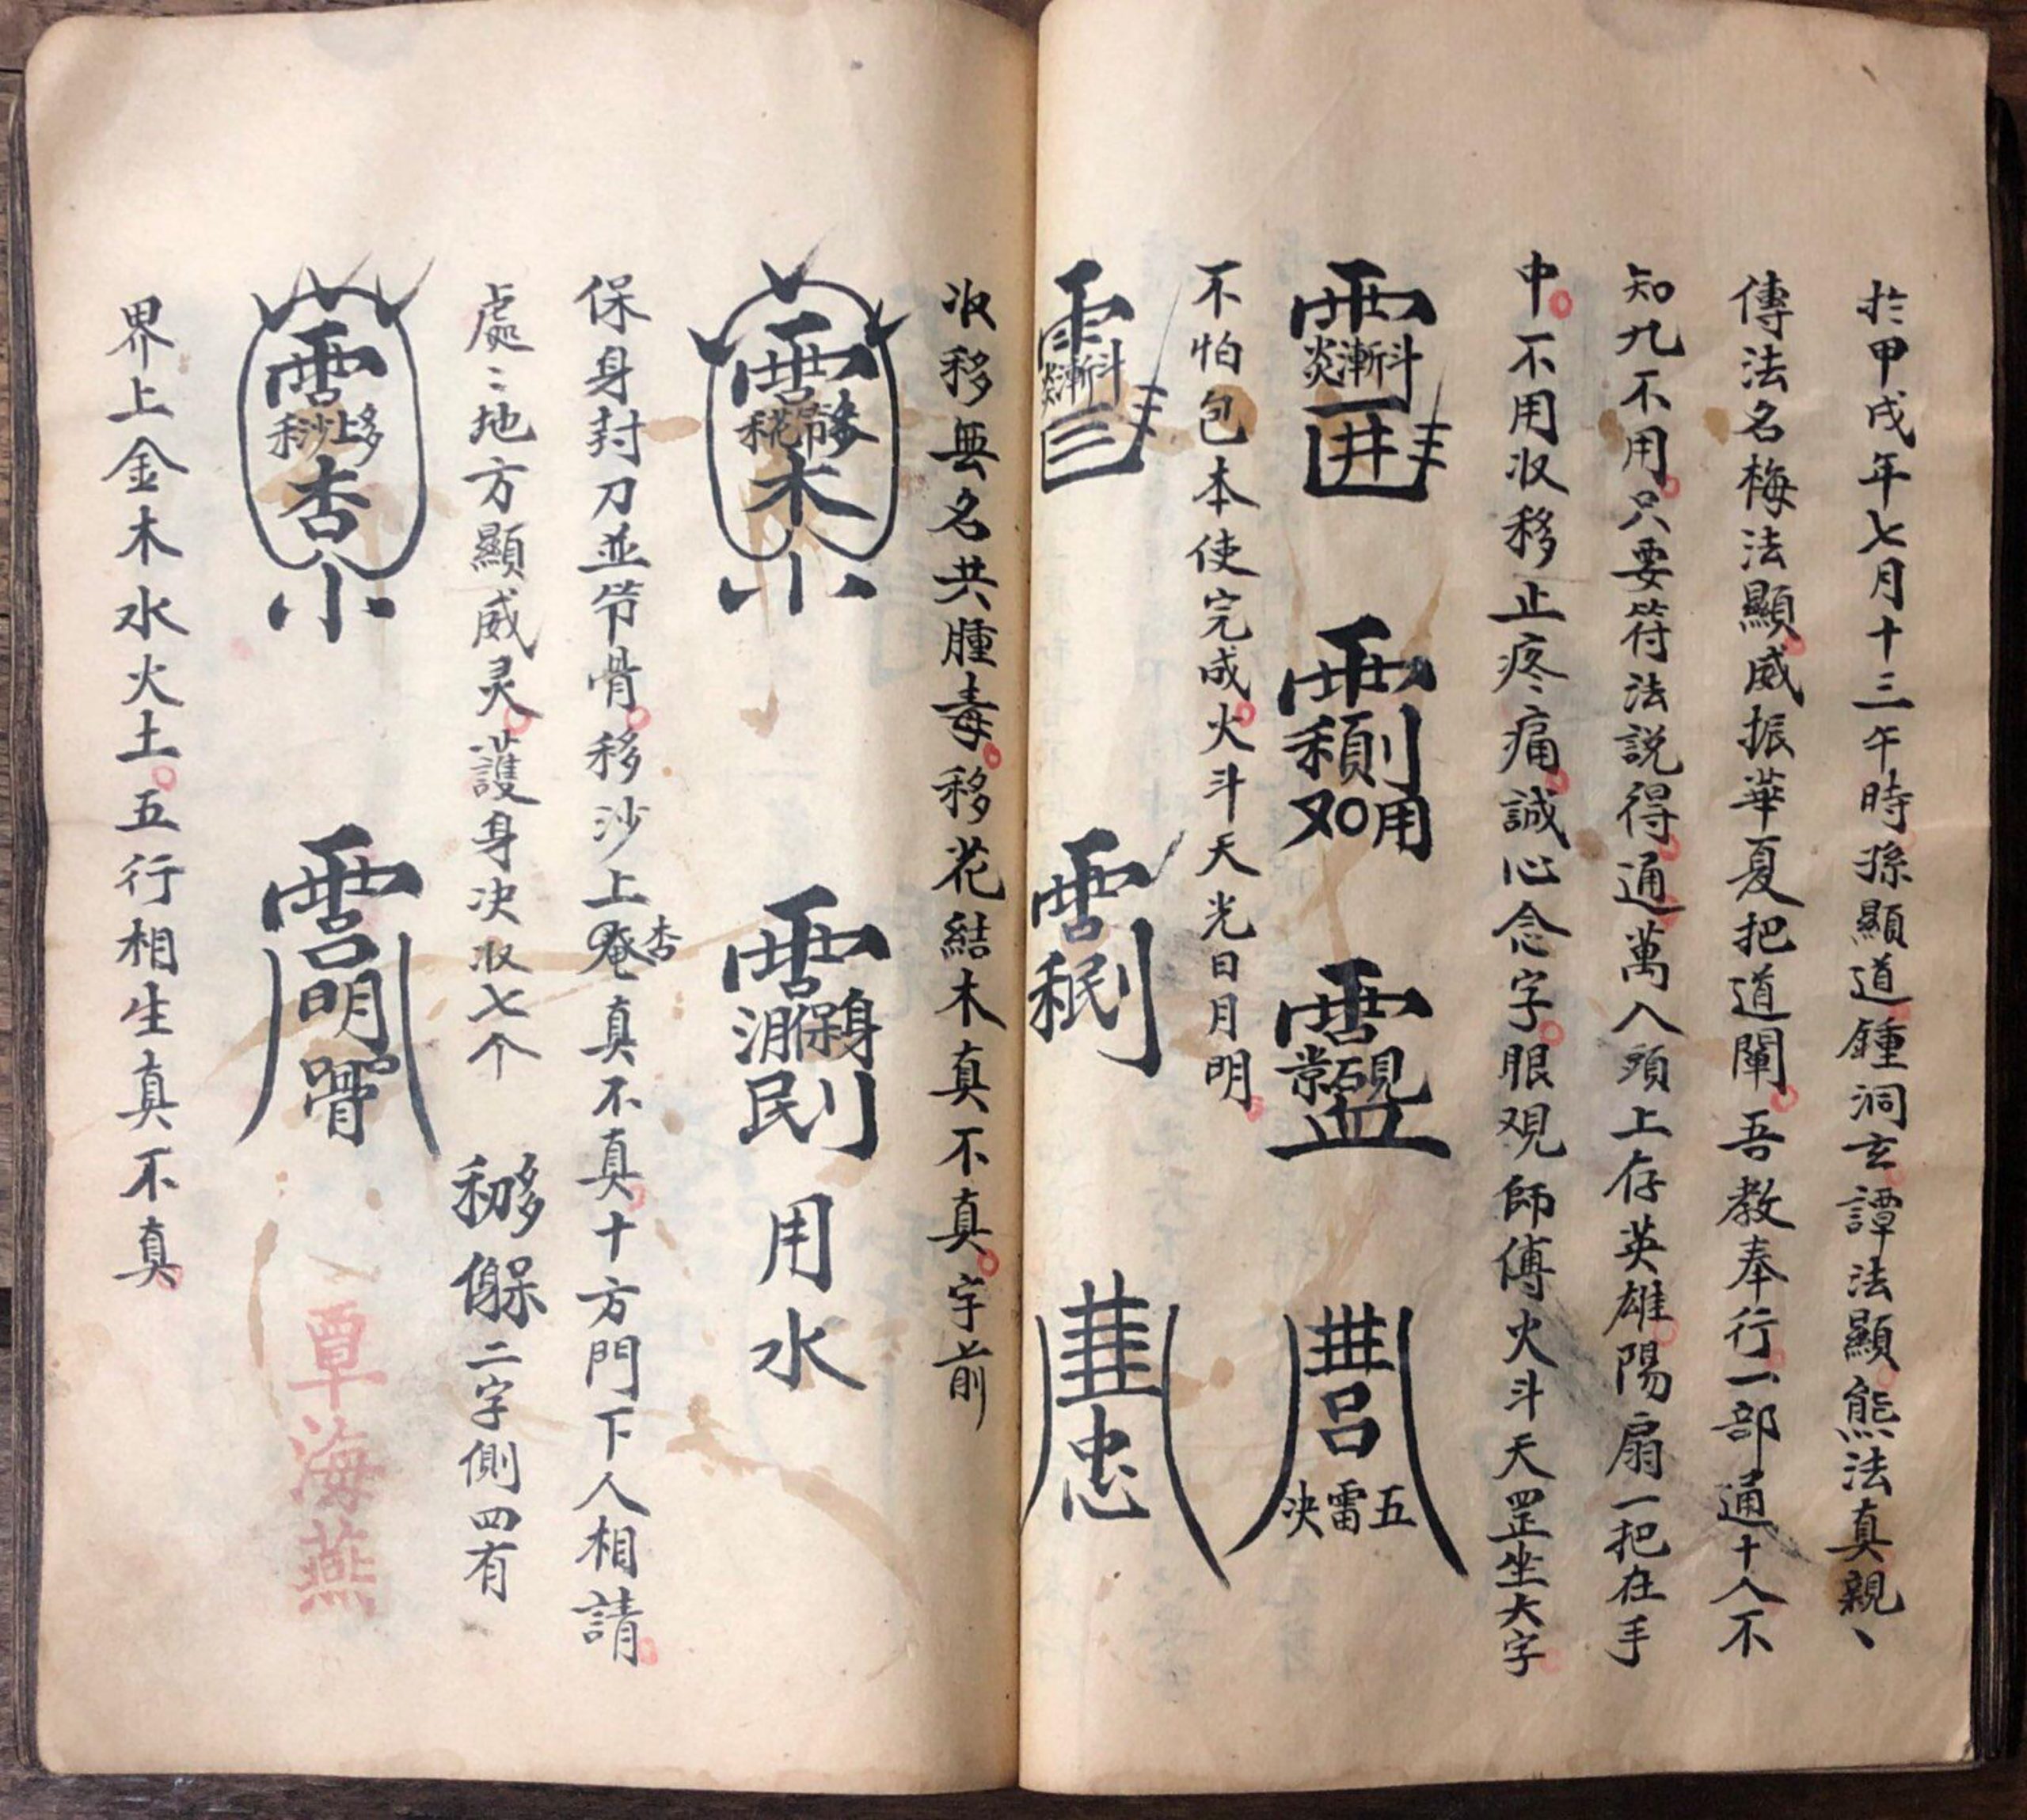 於甲戌年七月十三午時孫顯道鍾洞玄譚法顯熊法真親、
傳法名梅法顯威振華夏把道闡吾教奉行一部通十八不
知九不用只要符法説得通萬人頭上存英雄陽扇一把在手
中不用收移止疼痛誠心念字眼观師傅火斗天罡坐大字
五雷决
不怕包本使完成火斗天光日月明
收移無名共腫毒移花結木真不真字前
用水
保身封刀並节骨移沙上庵杏真不真十方門下人相請
處:地方顯威灵護身决收七个 二字側四有
覃海燕
界上金木水火土五行相生真不真